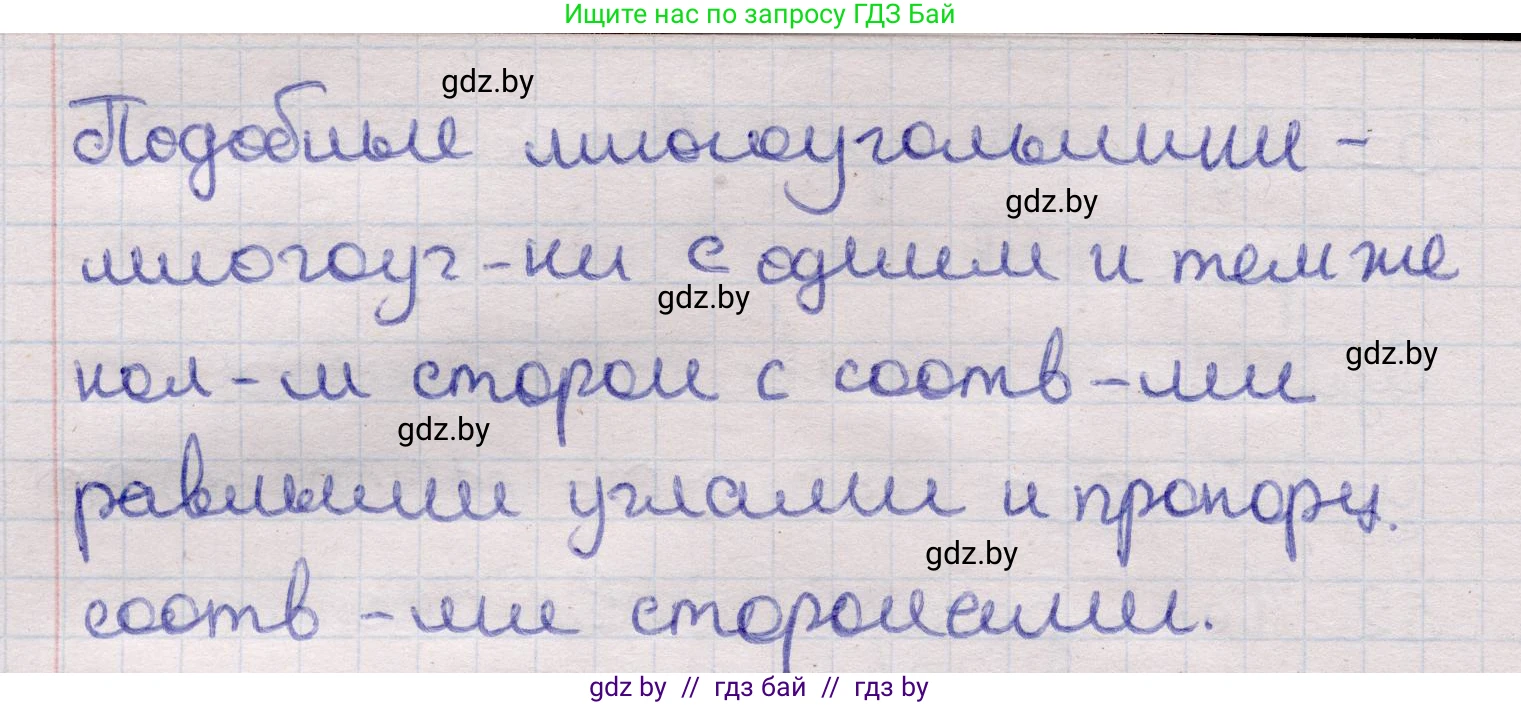 Ищите нас по запросу ГДЗ Бай
gdz.by
Подобные многоугольники -
gdz.by
многоуг-ки с одним и тем же
gdz.by
кол-м сторон с соотв-ми
gdz.by
gdz.by
равными углами и пропорц.
gdz.by
соотв-ми сторонами.
gdz by // гдз бай // гдз by